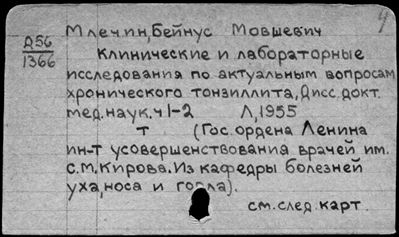 Млечин, Бейнус Мовшевич
Д56
1366
Клинические и лабораторные
исследования по актуальным вопросам
хронического тонзиллита, Дисс. докт.
мед. наук. ч 1-2 Л, 1955
т (Гос. ордена Ленина
ин-т усовершенствования врачей им.
С.М. Кирова. Из кафедры болезней
уха, носа и горла).
см. след. карт.